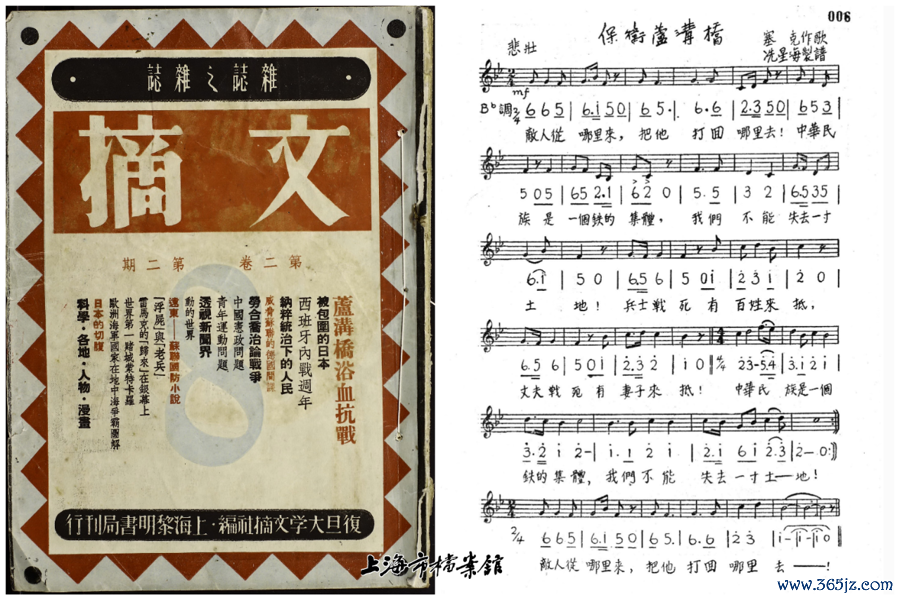 雜誌之雜誌
文摘
第二卷 第二期
蘆溝橋浴血抗戰
被包圍的日本
西班牙內戰週年
納粹統治下的人民
勞合喬治論戰爭
中國憲政問題
青年運動問題
透視新聞界
動的世界
遠東——蘇聯國防小說
「浮屍」與「老兵」
雷馬克的「歸來」在銀幕上
世界第一賭城蒙特卡羅
歐洲海軍國家在地中海爭霸圖解
日本的切腹
科學·各地·人物·漫畫
復旦大学文摘社編·上海黎明書局刊行
上海市檔案館
006
保衛蘆溝橋
悲壯
塞克作歌
冼星海製譜
mf
B♭調 2/4 6 6 5 | 6.i 5 0 | 6 5. | 6.6 | 2.3 5 0 | 6 5 3 |
敵人從 哪里來, 把他 打回 哪里去! 中華民
5 0 5 | 6 5 2.1 | 6 2 0 | 5. 5 | 3 2 | 6.5 3 5 |
族 是 一個鉄的 集體, 我們 不能 失去一寸
6.i | 5 0 | 6.5 6 | 5 0 i | 2 3 i | 2 0 |
土 地! 兵士戰 死 有 百姓來 抵,
6.5 6 | 5 0 i | 2.3 2 | i 0 | 4/4 2 3-5.4 | 3.i 2 i |
丈夫戰 死 有 妻子來 抵! 中華民 族是一個
3.2 i 2- | i. i 2 i | 2.i 6 i 2.3 | 2- 0 :|
鉄的集體, 我們不能 失去一寸土—地!
2/4 6 6 5 | 6.i 5 0 | 6 5. | 6.6 | 2 3 | i-|i-|i 0 ||
敵人從 哪里來, 把他 打回 哪里 去——!
www.365jz.com